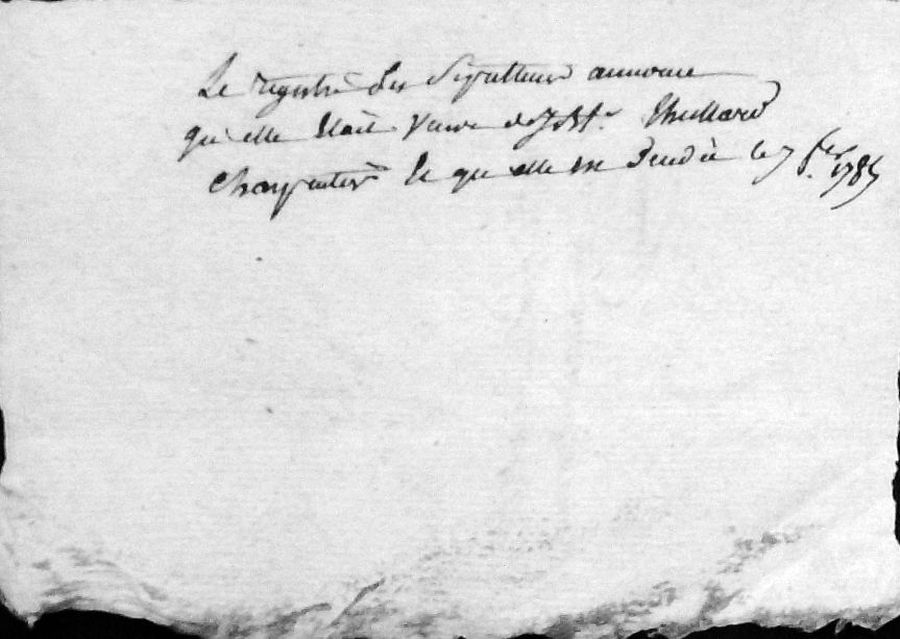 Le registre des Sepultures annonce
qu'elle Etait Veuve de J. Bte. Thuillard
Charpentier Et qu'elle est Decedée le 7 1785